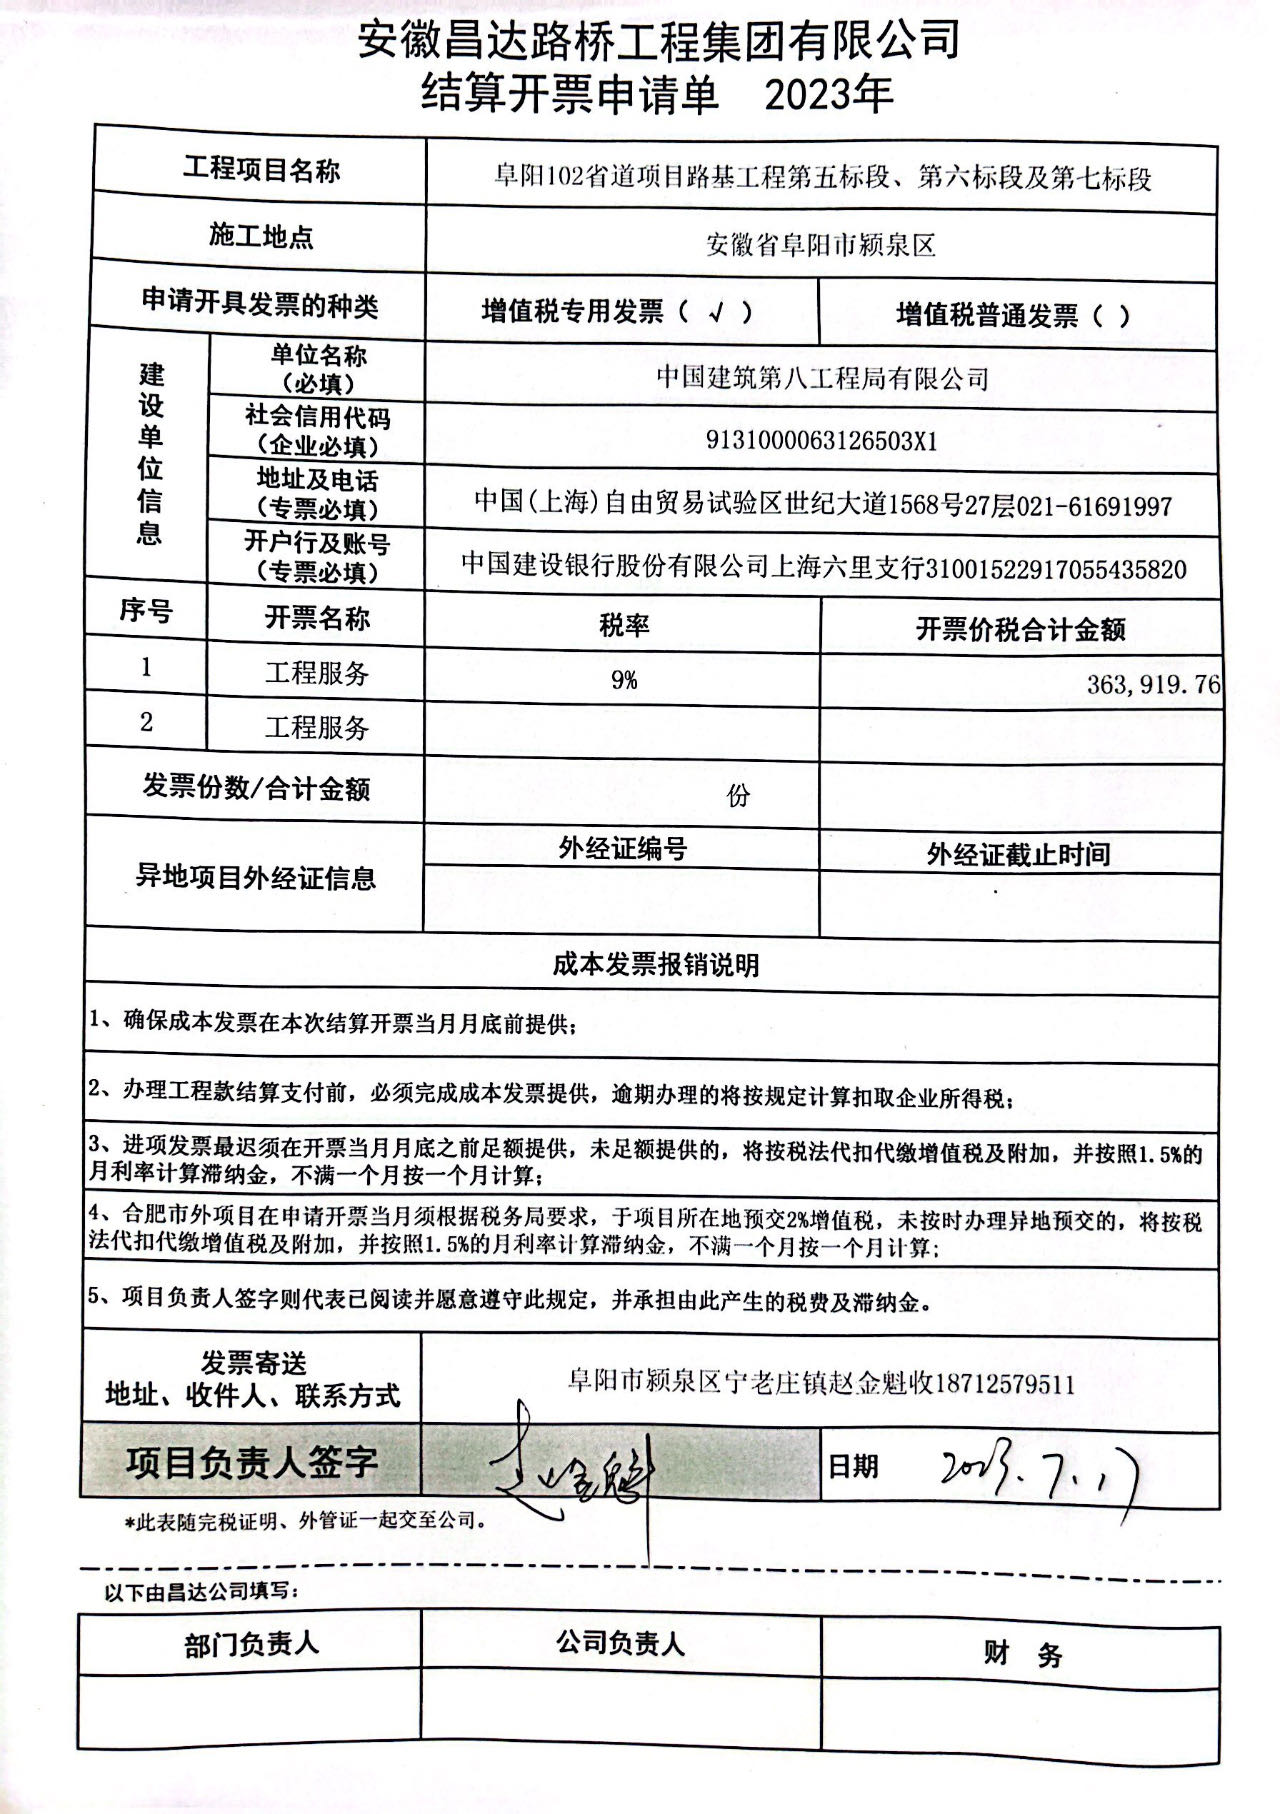 安徽昌达路桥工程集团有限公司
结算开票申请单 2023年
工程项目名称 阜阳102省道项目路基工程第五标段、第六标段及第七标段
施工地点 安徽省阜阳市颍泉区
申请开具发票的种类 增值税专用发票（ √ ） 增值税普通发票（ ）
建设单位信息
单位名称
（必填） 中国建筑第八工程局有限公司
社会信用代码
（企业必填） 9131000063126503X1
地址及电话
（专票必填） 中国(上海)自由贸易试验区世纪大道1568号27层021-61691997
开户行及账号
（专票必填） 中国建设银行股份有限公司上海六里支行31001522917055435820
序号 开票名称 税率 开票价税合计金额
1 工程服务 9% 363,919.76
2 工程服务
发票份数/合计金额 份
异地项目外经证信息 外经证编号 外经证截止时间
成本发票报销说明
1、确保成本发票在本次结算开票当月月底前提供；
2、办理工程款结算支付前，必须完成成本发票提供，逾期办理的将按规定计算扣取企业所得税；
3、进项发票最迟须在开票当月月底之前足额提供，未足额提供的，将按税法代扣代缴增值税及附加，并按照1.5%的
月利率计算滞纳金，不满一个月按一个月计算；
4、合肥市外项目在申请开票当月须根据税务局要求，于项目所在地预交2%增值税，未按时办理异地预交的，将按税
法代扣代缴增值税及附加，并按照1.5%的月利率计算滞纳金，不满一个月按一个月计算；
5、项目负责人签字则代表已阅读并愿意遵守此规定，并承担由此产生的税费及滞纳金。
发票寄送
地址、收件人、联系方式 阜阳市颍泉区宁老庄镇赵金魁收18712579511
项目负责人签字 赵金魁 日期 2023.7.17
*此表随完税证明、外管证一起交至公司。
以下由昌达公司填写：
部门负责人 公司负责人 财 务